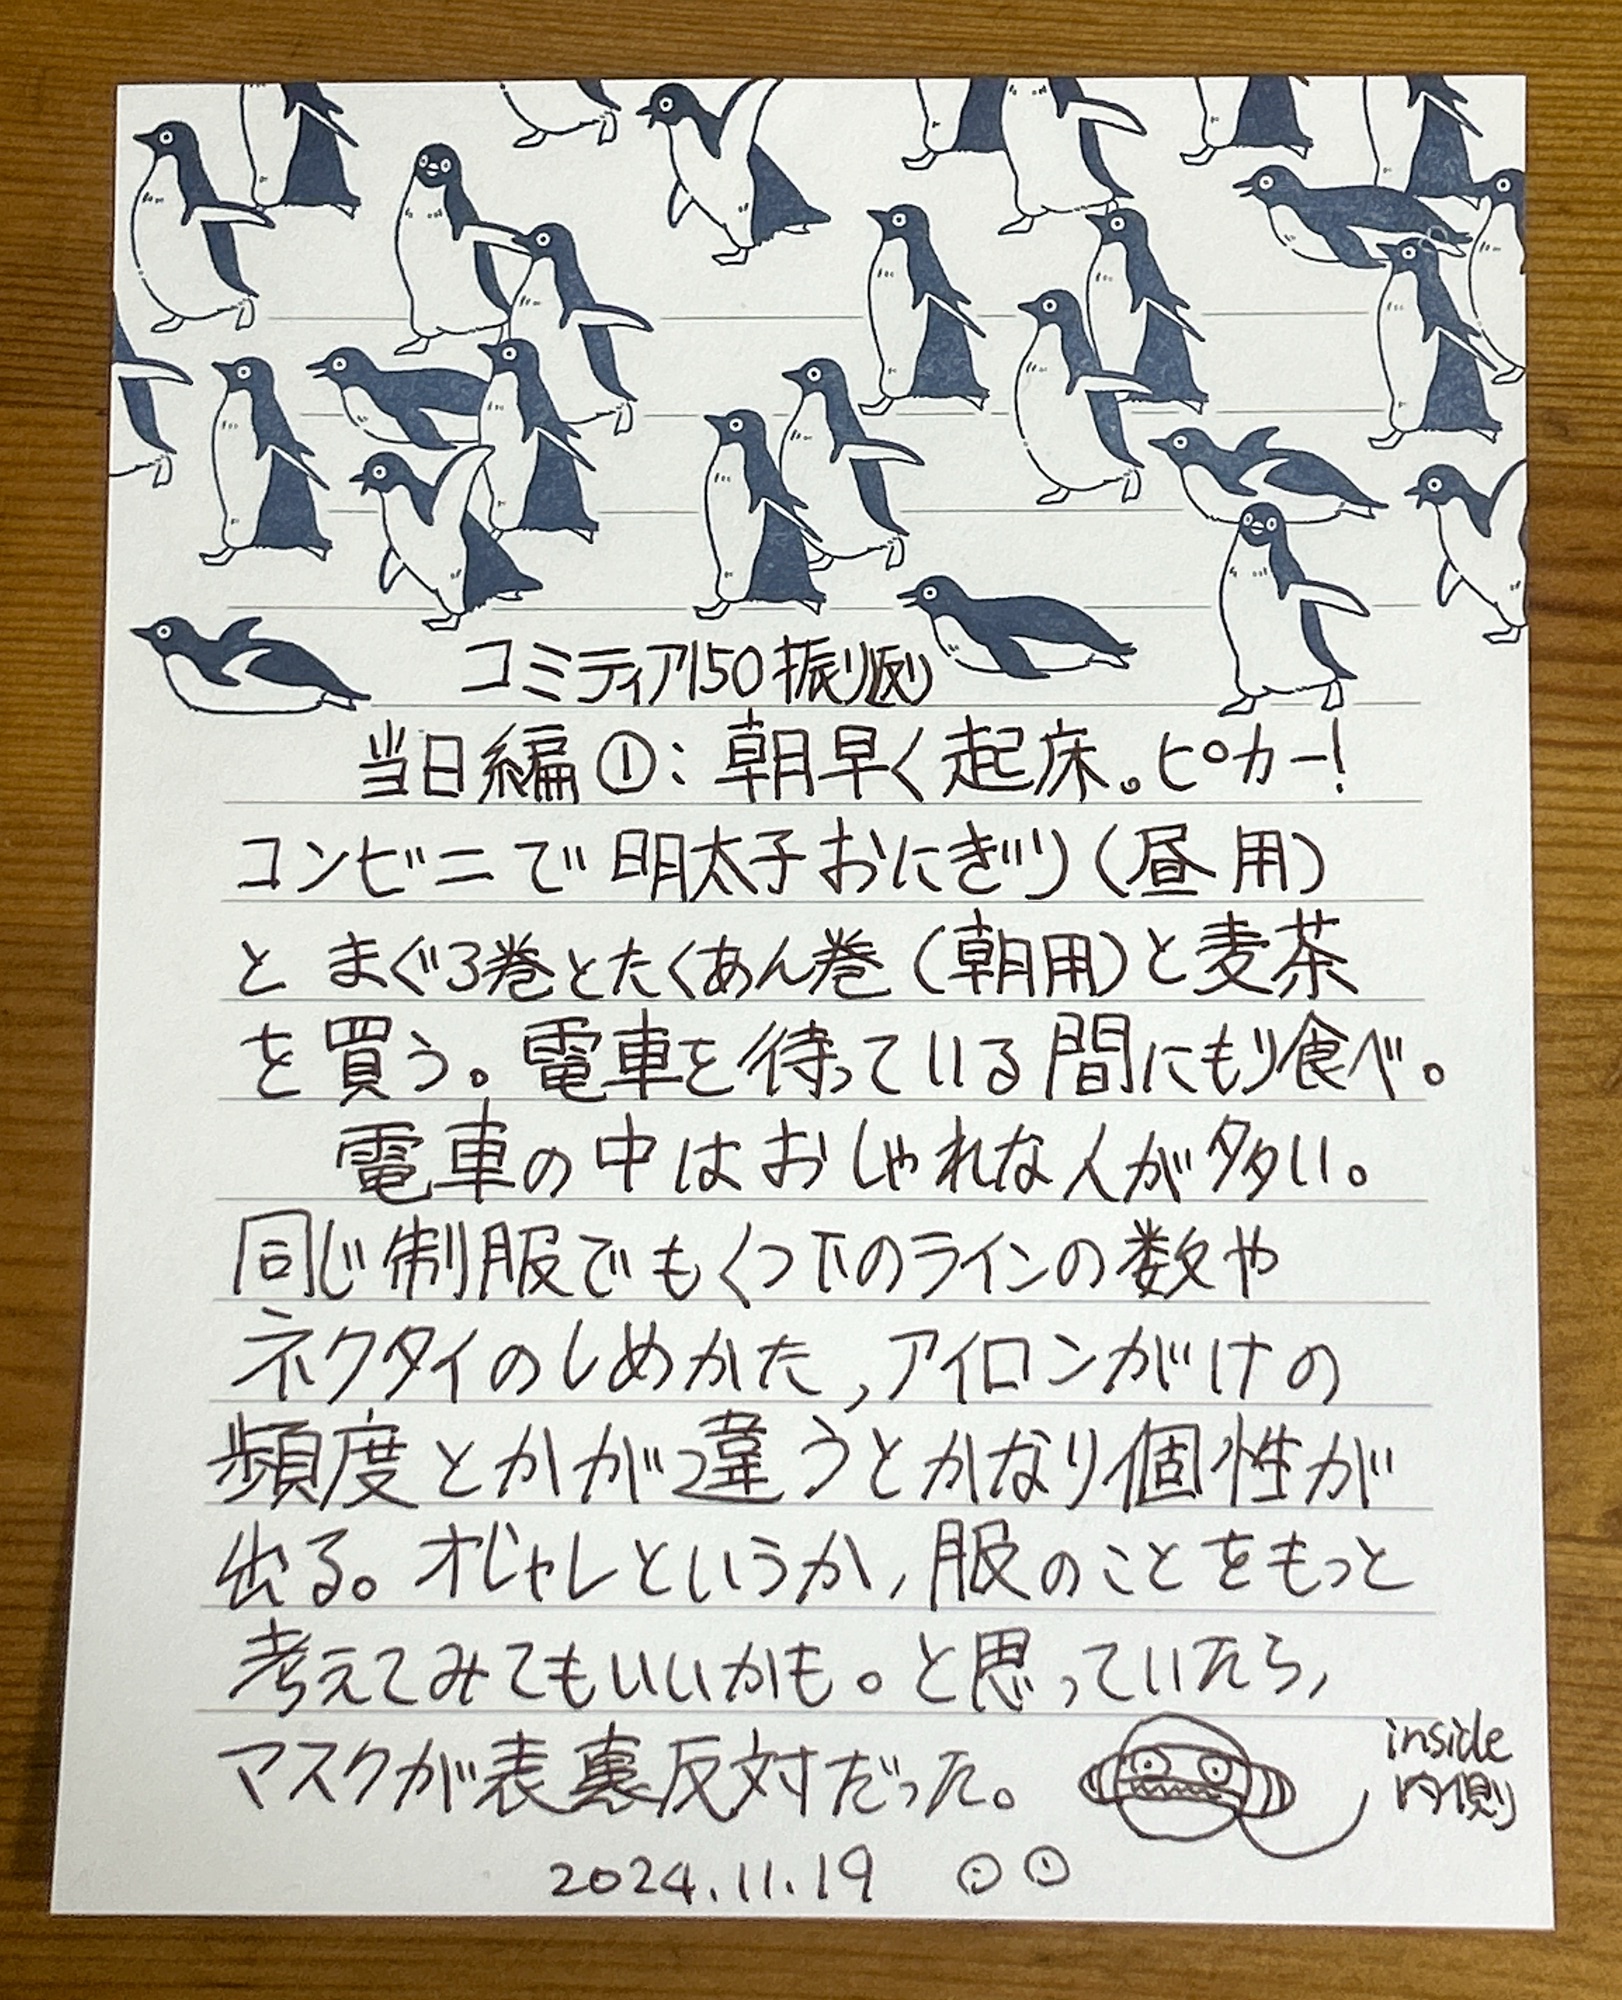 コミティア150振り返り
当日編①:朝早く起床。ピカー!
コンビニで明太子おにぎり(昼用)
とまぐろ巻とたくあん巻(朝用)と麦茶
を買う。電車を待っている間にもり食べ。
電車の中はおしゃれな人が多い。
同じ制服でもくつ下のラインの数や
ネクタイのしめかた、アイロンがけの
頻度とかが違うとかなり個性が
出る。オシャレというか、服のことをもっと
考えてみてもいいかも。と思っていたら、
マスクが表裏反対だった。
inside
内側
2024.11.19